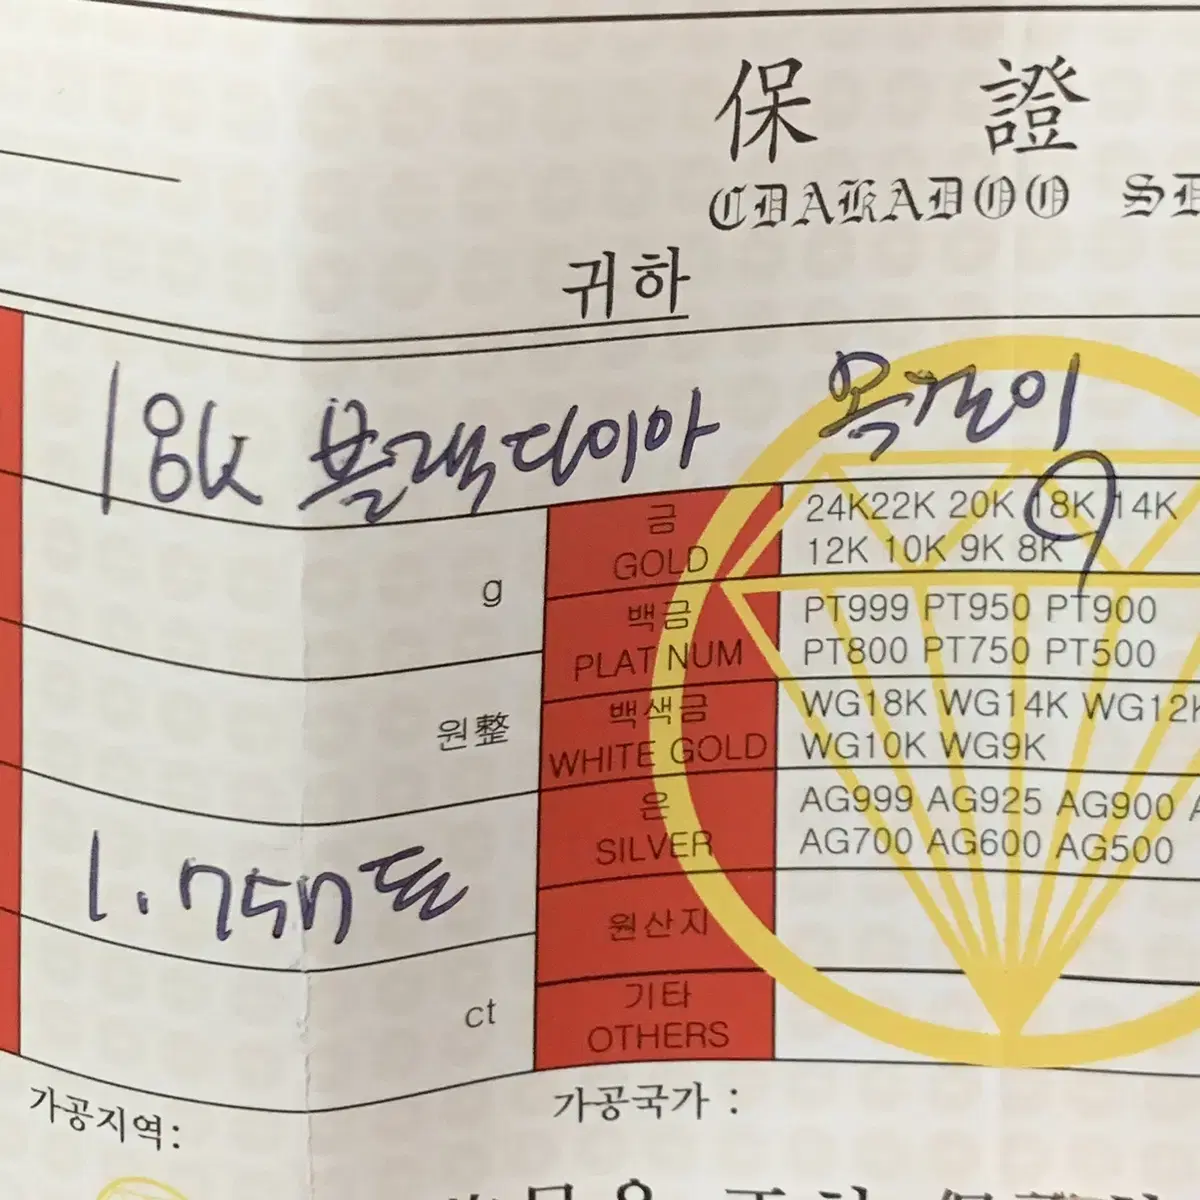 保 證
CDAKADOO
귀하
18K 블랙다이아 목걸이
금
GOLD
24K22K 20K 18K 14K
12K 10K 9K 8K
g
백금
PLATINUM
PT999 PT950 PT900
PT800 PT750 PT500
원整
백색금
WHITE GOLD
WG18K WG14K WG12K
WG10K WG9K
은
SILVER
AG999 AG925 AG900
AG700 AG600 AG500
원산지
ct
기타
OTHERS
가공지역:
가공국가 :